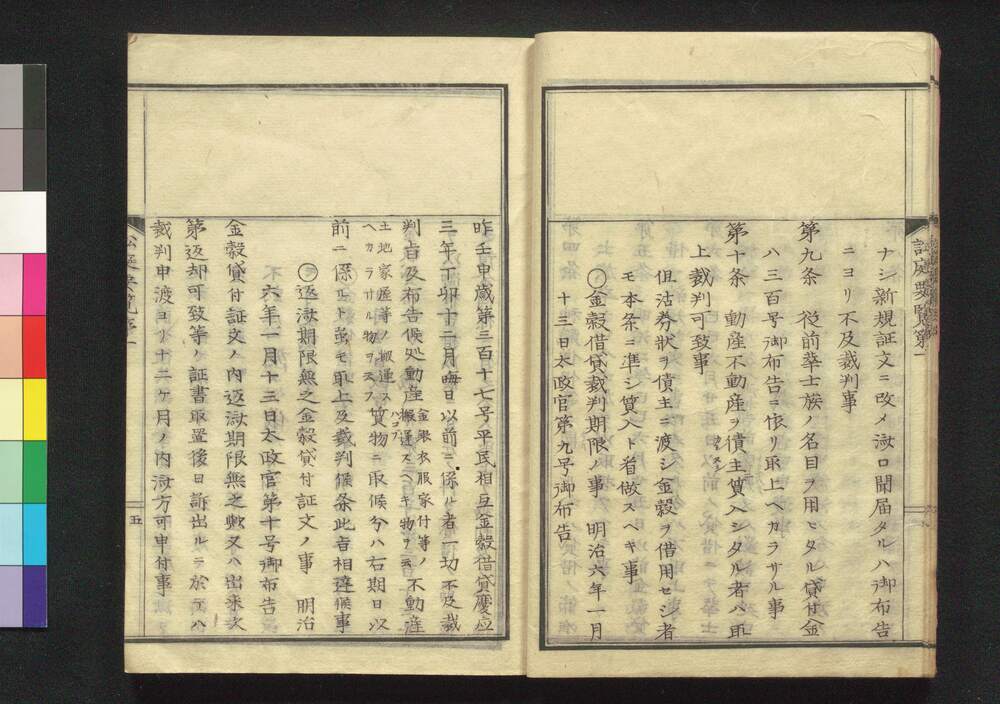 ナシ新規証文ニ改メ済口聞届タルハ御布告
ニヨリ不及裁判事
第九条 従前華士族ノ名目ヲ用ヒタル貸付金
八三百号御布告ニ依リ取上ヘカラサル事
第十条 動産不動産ヲ債主質入シタル者ハ取
上裁判可致事
但沽券状ヲ債主ニ渡シ金穀ヲ借用セシ者
モ本条ニ準シ質入ト看做スヘキ事
○金穀借貸裁判期限ノ事 明治六年一月
十三日太政官第九号御布告
昨壬申歳第三百十七号平民相互金穀借貸慶応
三年丁卯十二月晦日以前ニ係ル者一切不及裁
判旨及布告候処動産金銀衣服家付等ノ搬運スヘキ物ヲ云不動産
土地家屋等ノ搬運スヘカラサル物ヲ云フ質物ニ取候分ハ右期日以
前ニ係ルト雖モ取上及裁判候条此旨相達候事
○返済期限無之金穀貸付証文ノ事 明治
六年一月十三日太政官第十号御布告
金穀貸付証文ノ内返済期限無之歟又ハ出来次
第返却可致等ノ証書取置後日訴出ルニ於テハ
裁判申渡ヨリ十二ケ月ノ内済方可申付事
五